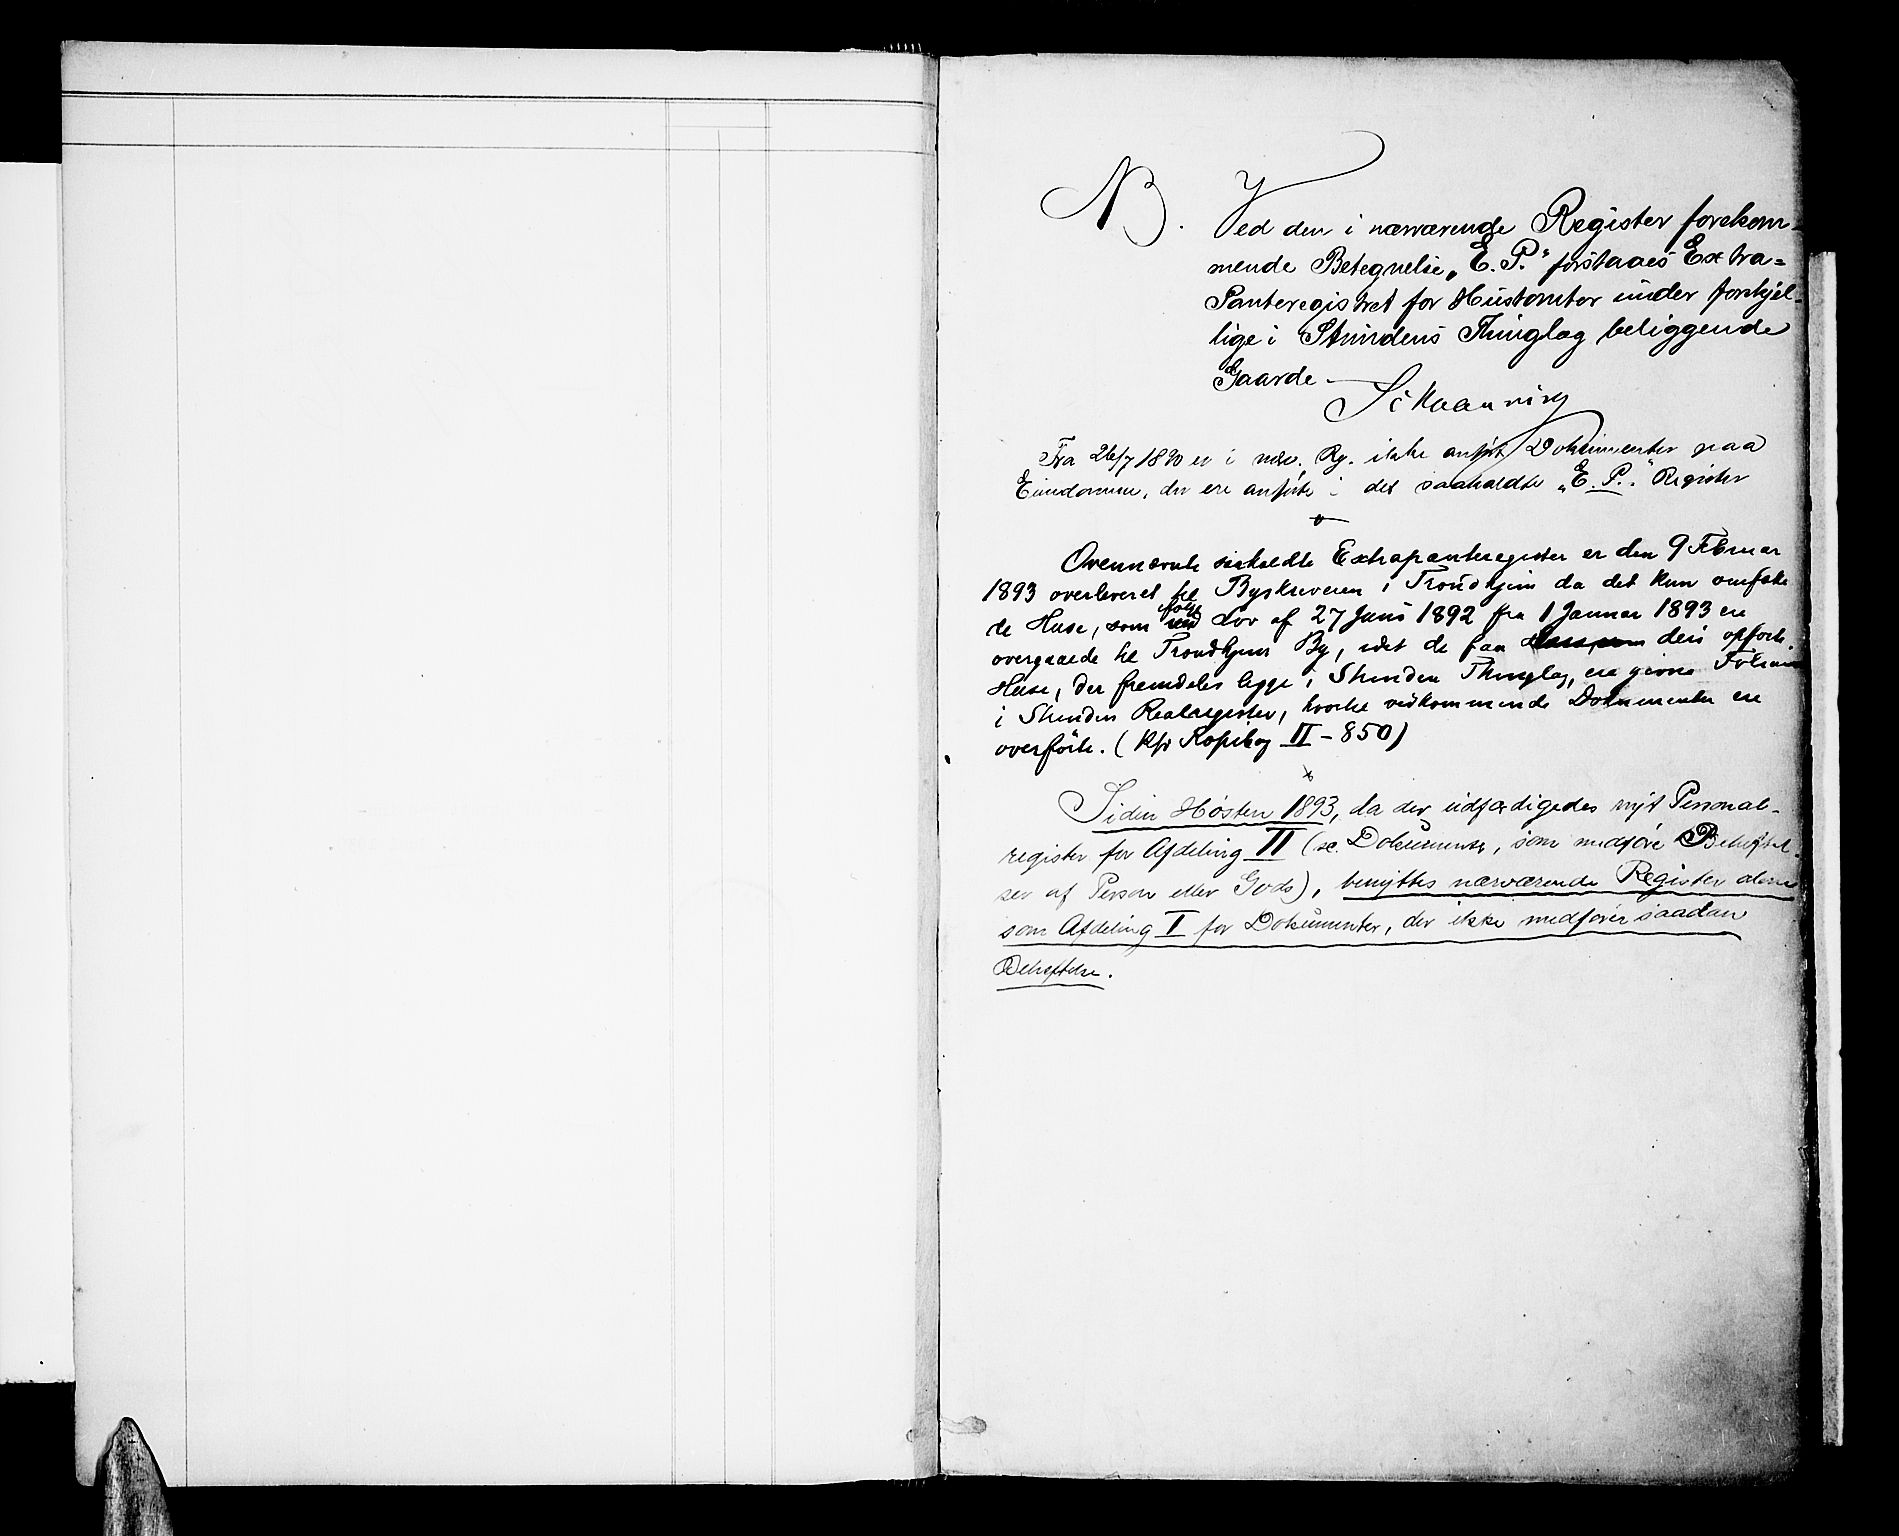 NB. Ved den i nærværende Register forekom-
mende Betegnelse „E. P.“ forstaaes Extra=
Panteregistret for Hustomter under forskjel-
lige i Strindens Thinglag beliggende
Gaarde —
Schaanning
Fra 26/7 1890 er i nærv. Rg. ikke anført Dokumenter paa
Eiendomme, der ere anførte i det saakaldte „E. P.“ Register
Ovennævnte saakaldte Extrapanteregister er den 9 Februar
1893 overleveret til Byskriveren i Trondhjem da det kun omfatte
de Huse, som ifølge Lov af 27 Juni 1892 fra 1 Januar 1893 ere
overgaaede til Trondhjems By, idet de faa deri opførte
Huse, der fremdeles ligge i Strinden Thinglag, ere givne Folium
i Strinden Realregister, hvorhen vedkommende Dokumenter ere
overførte. (Kfr Kopibog II – 850)
Siden Høsten 1893, da der udfærdigedes nyt Personal-
register for Afdeling II (sc. Dokumenter, som medføre Beheftel-
ser af Person eller Gods), benyttes nærværende Register alene
som Afdeling I for Dokumenter, der ikke medfører saadan
Beheftelse.